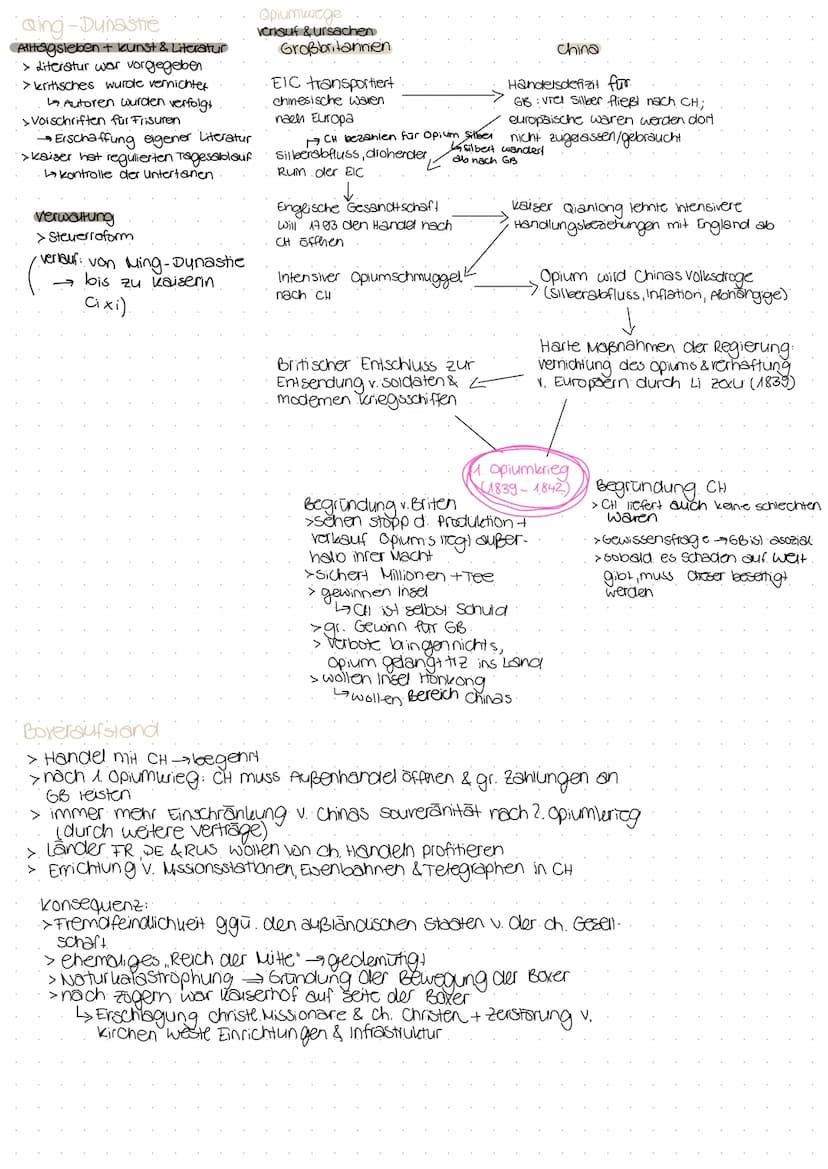 Qing-Dynastie
Alltagsleben + Kunst & Literatur
> Literatur war vorgegeben
> kritisches wurde vernichtet
↳ Autoren wurden verfolgt
> Vorschriften für Frisuren
→ Erschaffung eigener Literatur
> Kaiser hat regulierten Tagesablauf
↳ Kontrolle der Untertanen
Verwaltung
> Steuerreform
(Verlauf: von Ming-Dynastie
→ bis zu Kaiserin
Cixi)
Opiumkriege
Verlauf & Ursachen
Großbritannien
China
EIC transportiert
chinesische Waren
nach Europa
Handelsdefizit für
GB: viel Silber fließt nach CH;
europäische Waren werden dort
nicht zugelassen/gebraucht
↳ CH bezahlen für Opium Silber
↳ Silber wandert
ab nach GB
Silberabfluss, drohender
Ruin der EIC
Englische Gesandtschaft
will 1793 den Handel nach
CH öffnen
Kaiser Qianlong lehnte intensivere
Handlungsbeziehungen mit England ab
Intensiver Opiumschmuggel
nach CH
Opium wird Chinas Volksdroge
(Silberabfluss, Inflation, Abhängige)
Harte Maßnahmen der Regierung:
Vernichtung des Opiums & Verhaftung
v. Europäern durch Li Zexu (1839)
Britischer Entschluss zur
Entsendung v. Soldaten &
modernen Kriegsschiffen
1. Opiumkrieg
(1839-1842)
Begründung v. Briten
> sehen Stopp d. Produktion +
Verkauf Opiums liegt außer-
halb ihrer Macht
> sichert Millionen + Tee
> gewinnen Insel
↳ CH ist selbst Schuld
> gr. Gewinn für GB
> Verbote bringen nichts,
Opium gelangt tz ins Land
> wollen Insel Honkong
↳ wollen Bereich Chinas
Begründung CH
> CH liefert auch keine schlechten
Waren
> Gewissensfrage → GB ist asozial
> sobald es Schaden auf Welt
gibt, muss dieser beseitigt
werden
Boxeraufstand
> Handel mit CH → begehrt
> nach 1. Opiumkrieg: CH muss Außenhandel öffnen & gr. Zahlungen an
GB leisten
> immer mehr Einschränkung v. Chinas Souveränität nach 2. Opiumkrieg
(durch weitere Verträge)
> Länder FR, DE & RUS wollen von ch. Handeln profitieren
> Errichtung v. Missionsstationen, Eisenbahnen & Telegraphen in CH
Konsequenz:
> Fremdfeindlichkeit ggü. den außländischen Staaten v. der ch. Gesell-
schaft
> ehemaliges „Reich der Mitte" → gedemütigt
> Naturkatastrophung → Gründung der Bewegung der Boxer
> nach zögern war Kaiserhof auf Seite der Boxer
↳ Erschlagung christl. Missionare & ch. Christen + Zerstörung v.
Kirchen westl. Einrichtungen & Infrastruktur